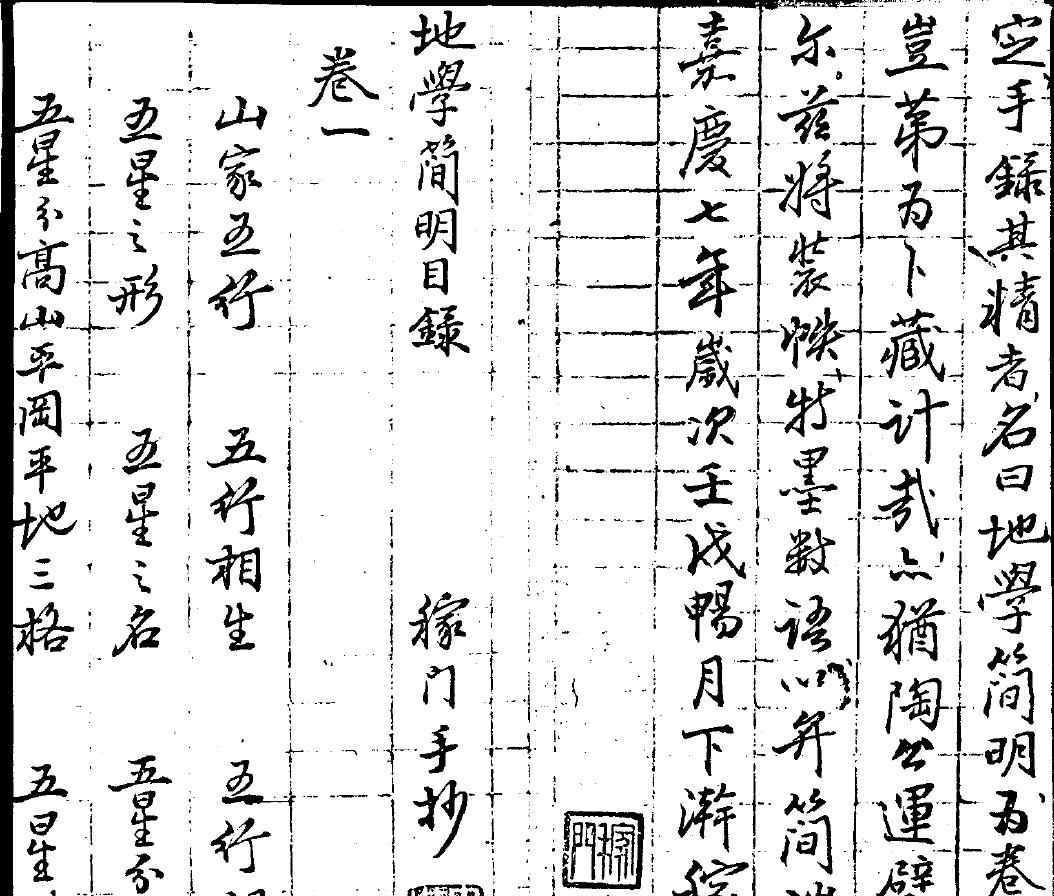 定手錄其精者名曰地學簡明为卷
豈苐为卜藏计哉亦猶陶公運甓
尔兹將裝帙特墨数语以弁简
嘉慶七年歲次壬戌暢月下澣稼
稼門
地學简明目錄 稼门手抄
卷一
山家五行 五行相生 五行
五星之形 五星之名 五星分
五星分高山平岡平地三格 五星